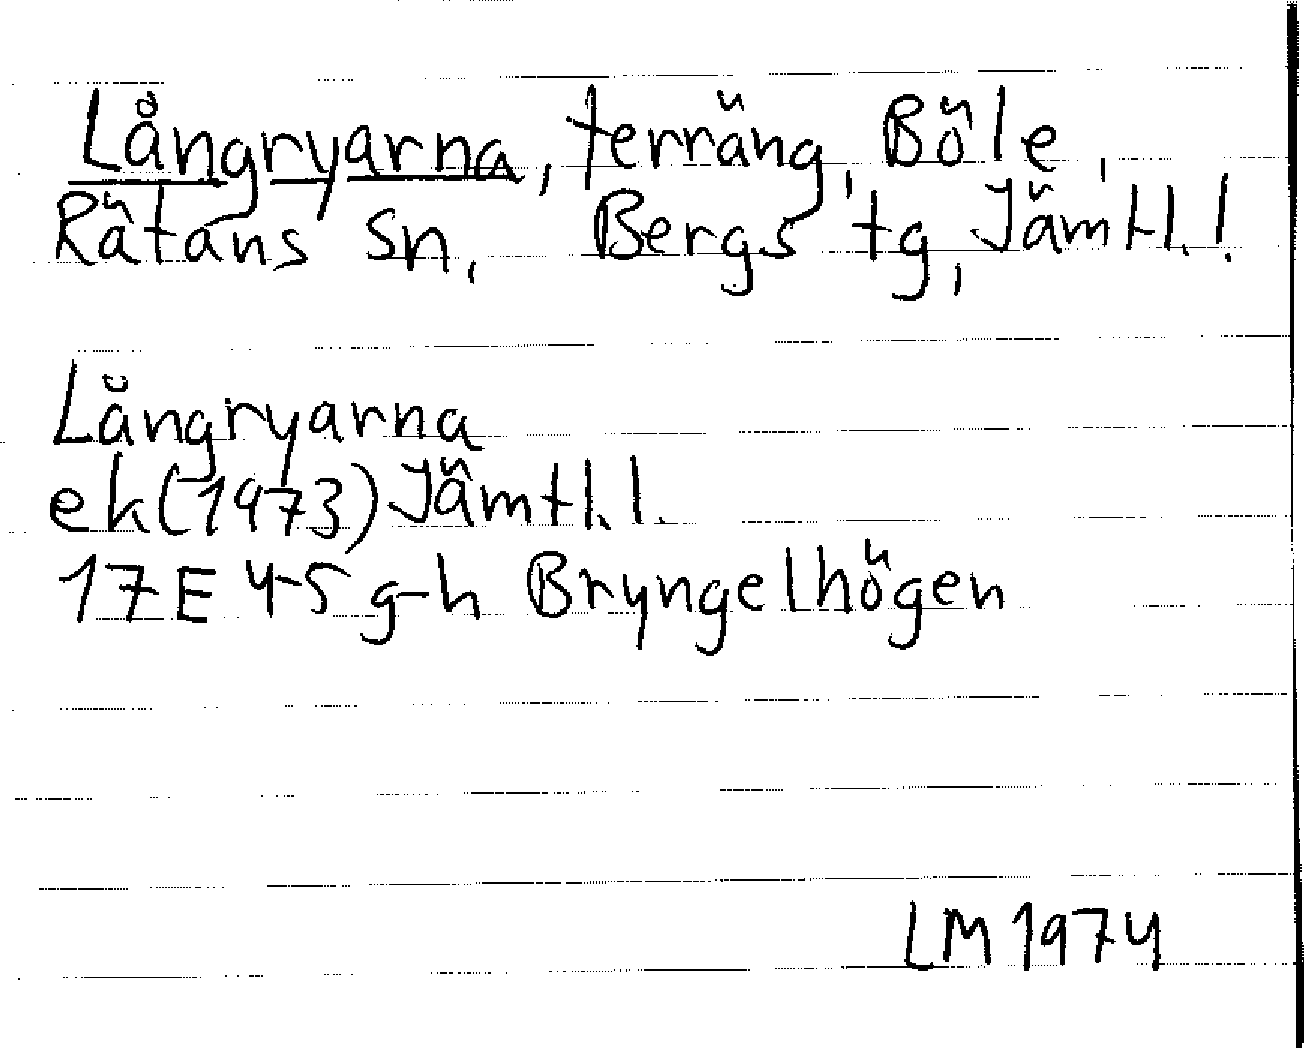 Långryarna, terräng, Böle,
Rätans sn, Bergs tg, Jämtl.l
Långryarna
ek(1973) Jämtl.l.
17E 4-5 g-h Bryngelhögen
LM 1974